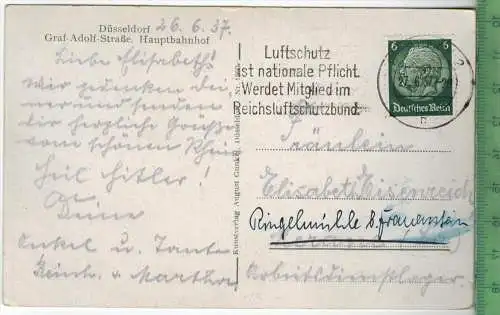 Düsseldorf 26.6.37.
Graf-Adolf-Straße, Hauptbahnhof
Liebe Elisabeth!
Wir gedenken dei-
ner und senden
dir herzliche Grüße
vom schönen Rhein
Heil Hitler!
Deine
Onkel u. Tante
Heinr. u. Martha
Kunstverlag August Düsseldorf
Luftschutz
ist nationale Pflicht.
Werdet Mitglied im
Reichsluftschutzbund.
6 6
Deutsches Reich
Fräulein
Elisabeth Eisenreich
Ringelmühle b. Frauenstein
Arbeitsdienstlager.